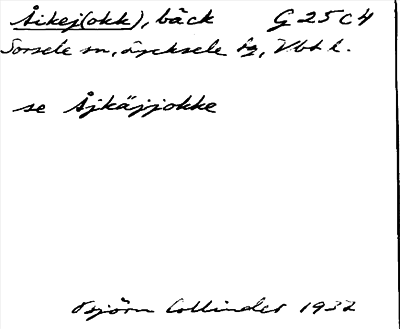 Åikej(okk), bäck G 25 C 4
Sorsele sn, Lycksele lg, Vbt l.
se Åjkäjjokke
Björn Collinder 1932